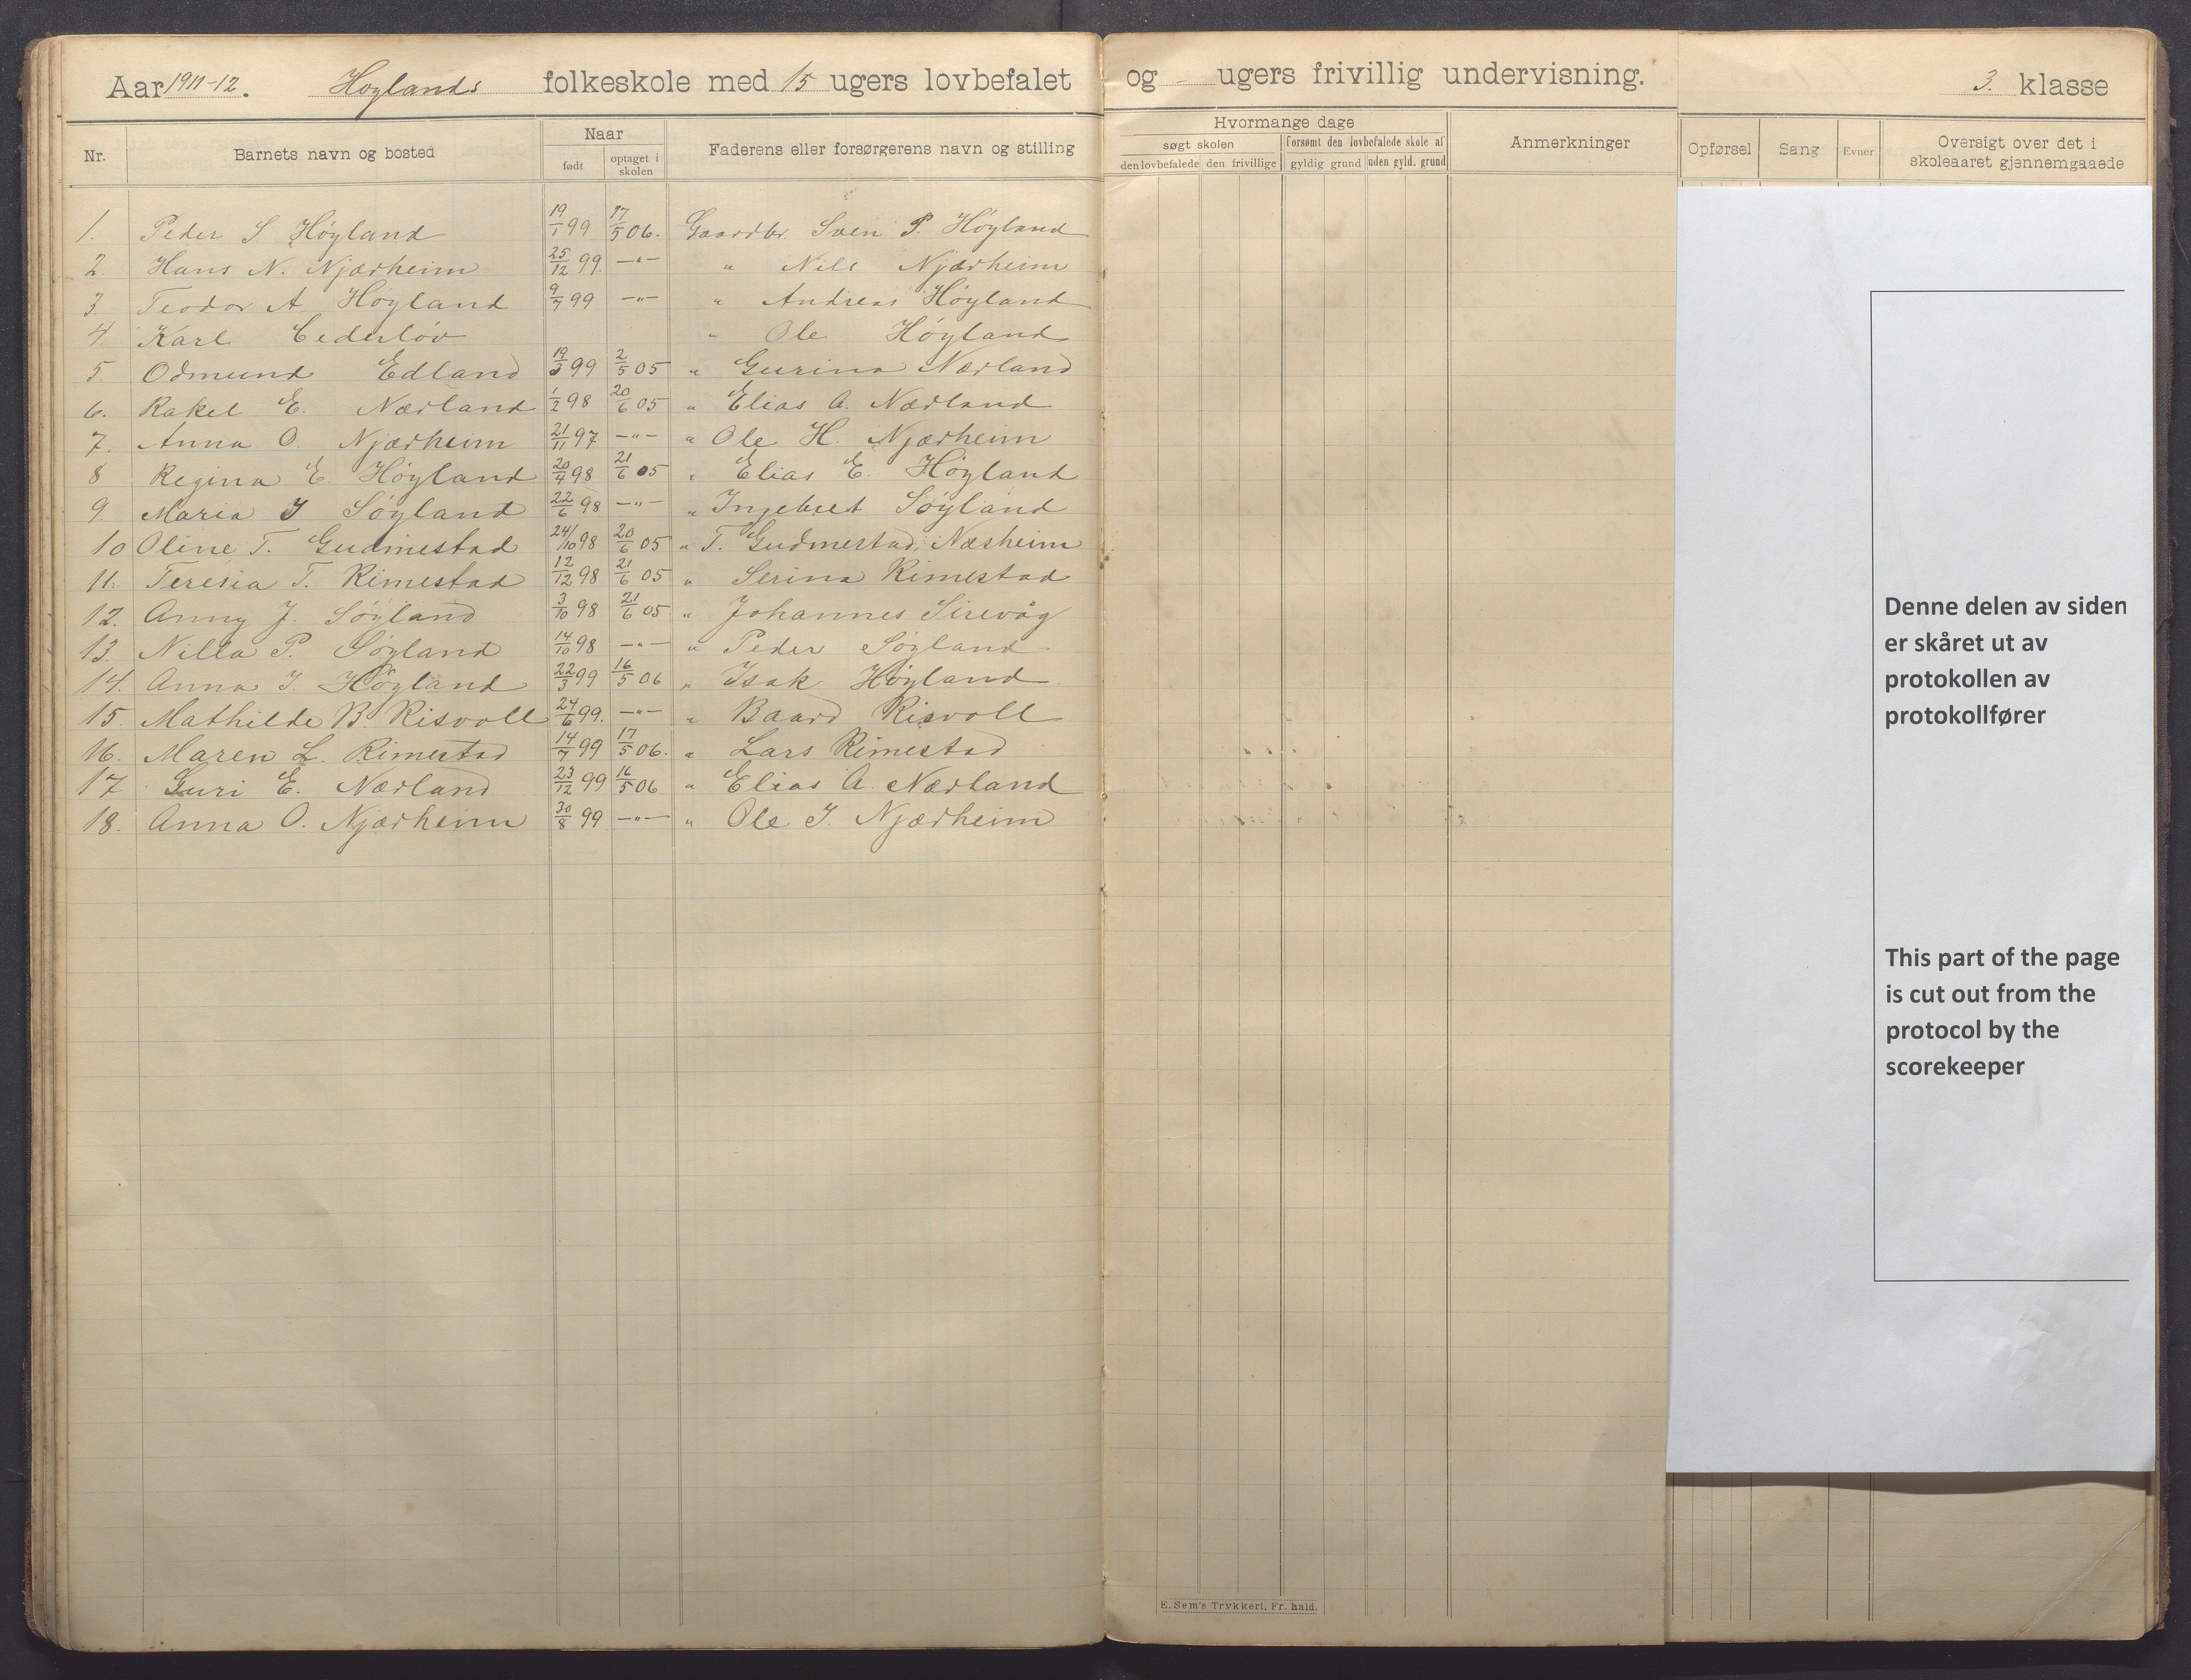 Aar 1911-12. Høylands folkeskole med 15 ugers lovbefalet og - ugers frivillig undervisning. 3. klasse
Nr. Barnets navn og bosted Naar født optaget i skolen Faderens eller forsørgerens navn og stilling Hvormange dage søgt skolen den lovbefalede den frivillige forsømt den lovbefalede skole af gyldig grund uden gyld. grund Anmerkninger Opførsel Sang Evner Oversigt over det i skoleaaret gjennemgaaede
1. Peder S Høyland 19/1 99 17/5 06. Gaardbr. Sven P. Høyland
2. Hans N. Njærheim 25/12 99. —"— " Nils Njærheim
3. Teodor A Høyland 9/7 99 —"— " Andreas Høyland
4. Karl Cederløv " Ole Høyland
5. Odmund Edland 19/3 99 2/5 05 " Gurina Nærland
6. Rakel E. Nærland 1/2 98 20/6 05 " Elias A. Nærland
7. Anna O. Njærheim 21/11 97 —"— " Ole H. Njærheim
8 Regina E Høyland 20/4 98 21/6 05 " Elias E. Høyland
9. Maria I Søyland 22/6 98 —"— " Ingebret Søyland
10 Oline T. Gudmestad 24/10 98 20/6 05 " T. Gudmestad, Næsheim
11. Teresia T. Rimestad 12/12 98 21/6 05 " Serina Rimestad
12. Anny J. Søyland 3/10 98 21/6 05 " Johannes Sirevåg
13. Nilla P. Søyland 14/10 98 —"— " Peder Søyland
14. Anna I. Høyland 22/3 99 16/5 06 " Isak Høyland
15. Mathilde B. Risvoll 24/6 99. —"— " Baard Risvoll
16. Maren L. Rimestad 14/7 99 17/5 06. " Lars Rimestad
17 Guri E. Nærland 23/12 99 16/5 06 " Elias A. Nærland
18. Anna O. Njærheim 30/8 99 —"— " Ole I. Njærheim
Denne delen av siden
er skåret ut av
protokollen av
protokollfører
This part of the page
is cut out from the
protocol by the
scorekeeper
E. Sem's Trykkeri, Fr. hald.